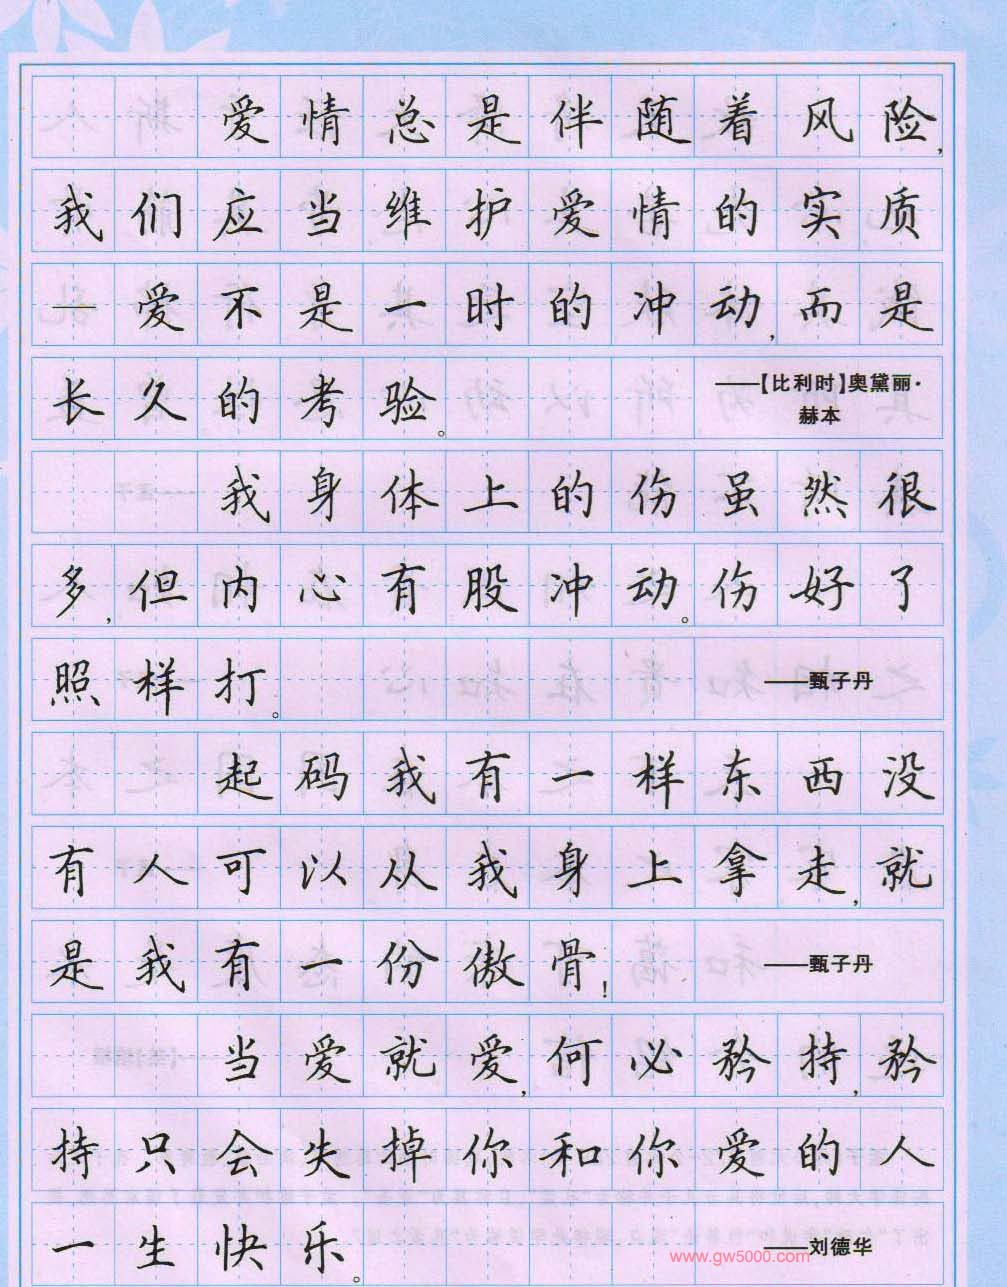 爱情总是伴随着风险,
我们应当维护爱情的实质
一爱不是一时的冲动,而是
长久的考验。 ——【比利时】奥黛丽·
赫本
我身体上的伤虽然很
多,但内心有股冲动。伤好了
照样打。 ——甄子丹
起码我有一样东西没
有人可以从我身上拿走,就
是我有一份傲骨! ——甄子丹
当爱就爱,何必矜持,矜
持只会失掉你和你爱的人
一生快乐。 ——刘德华
www.gw5000.com